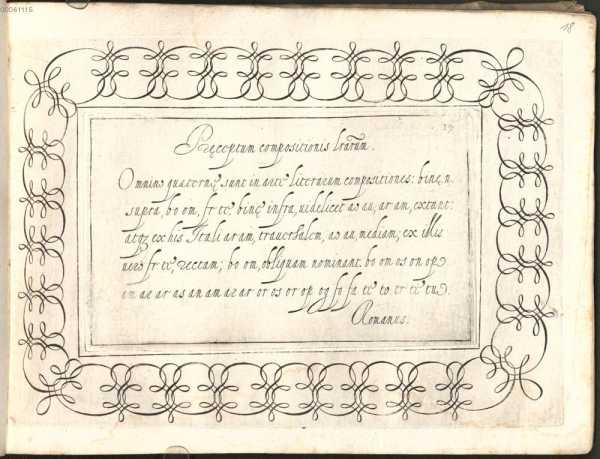 00061115
18
19
Pręceptum compositionis lrarum.
Omnino quaternę sunt in arte literarum compositiones: binę n.
supra, bo om, fr te, binę infra, uidelicet as au, ar am, extant:
atqz ex his Itali ar am, trauersalem, as au, mediam; ex illis
uero fr te, rectam; bo om, obliquam nominant. bo om os on op
om ae ar as an am ae ar or os or op og fo fa te to tr te tu
Romanus.